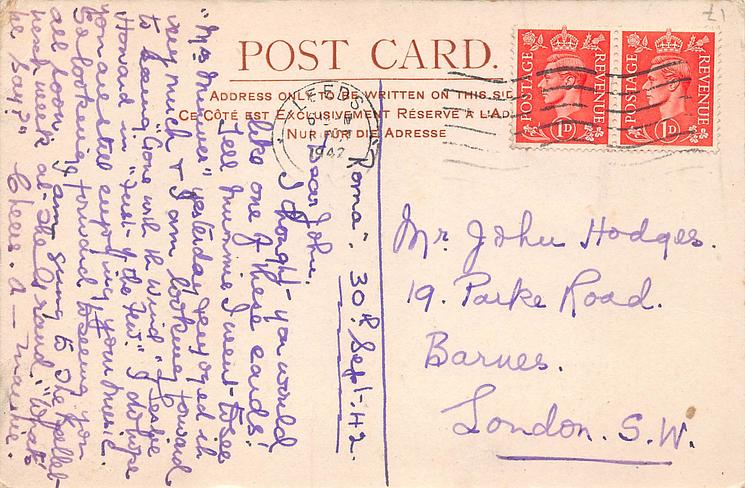 POST CARD.
ADDRESS ONLY TO BE WRITTEN ON THIS SID
CE CÔTÉ EST EXCLUSIVEMENT RÉSERVÉ À L'AD
NUR FÜR DIE ADRESSE
POSTAGE REVENUE 1D
POSTAGE REVENUE 1D
LEEDS
1942
£1
"Roma". 30th Sept-42.
Dear John,
I thought you would
like one of these cards!
Tell Mummie I went to see
"Mrs Miniver" yesterday & enjoyed it
very much & I am looking forward
to seeing "Gone with the Wind" & Leslie
Howard in "First of the Few". I do hope
you are still enjoying your music.
Be looking forward to seeing you
all soon. I am going to the Ballet
next week at the Grand. "What
he say?" Cheers. A — Maurice.
Mr. John Hodges.
19. Parke Road.
Barnes.
London. S.W.